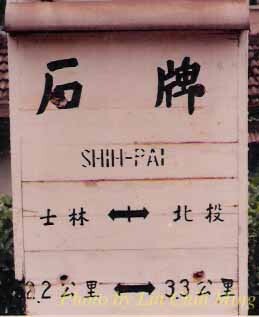 石牌
SHIH-PAI
士林 ⟷ 北投
2.2公里 ⟷ 3.3公里
Photo by